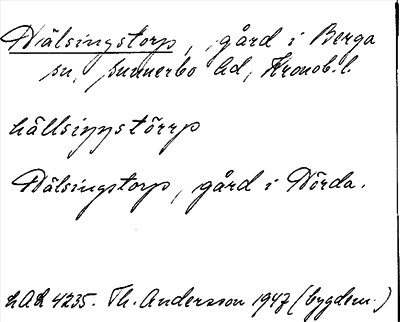 Hälsingstorp, gård i Berga
sn, Sunnerbo hd, Kronob. l.
hällsiŋŋstörrp
Hälsingstorp, gård i Nörda.
LAL 4235. Th. Andersson 1947 (bygdem.)